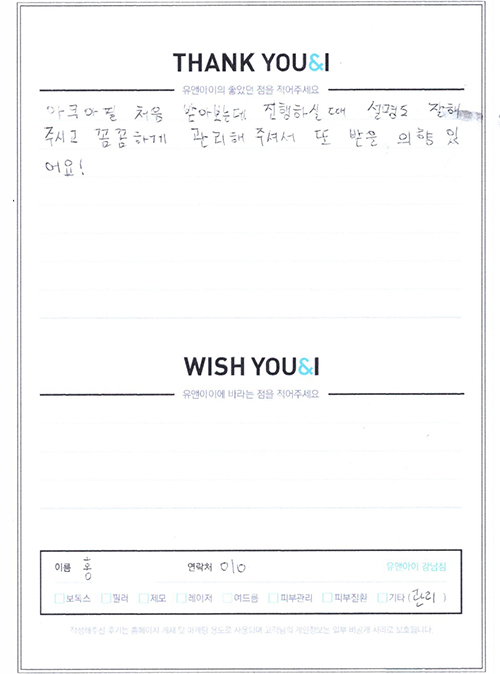 THANK YOU&I
유앤아이의 좋았던 점을 적어주세요
아쿠아필 처음 받아보는데 진행하실 때 설명도 잘해
주시고 꼼꼼하게 관리해 주셔서 또 받을 의향 있
어요!
WISH YOU&I
유앤아이에 바라는 점을 적어주세요
이름 홍 연락처 010 유앤아이 강남점
보톡스 필러 제모 레이저 여드름 피부관리 피부질환 기타(관리)
작성해주신 후기는 홈페이지 게재 및 마케팅 용도로 사용되며 고객님의 개인정보는 일부 비공개 처리로 보호됩니다.